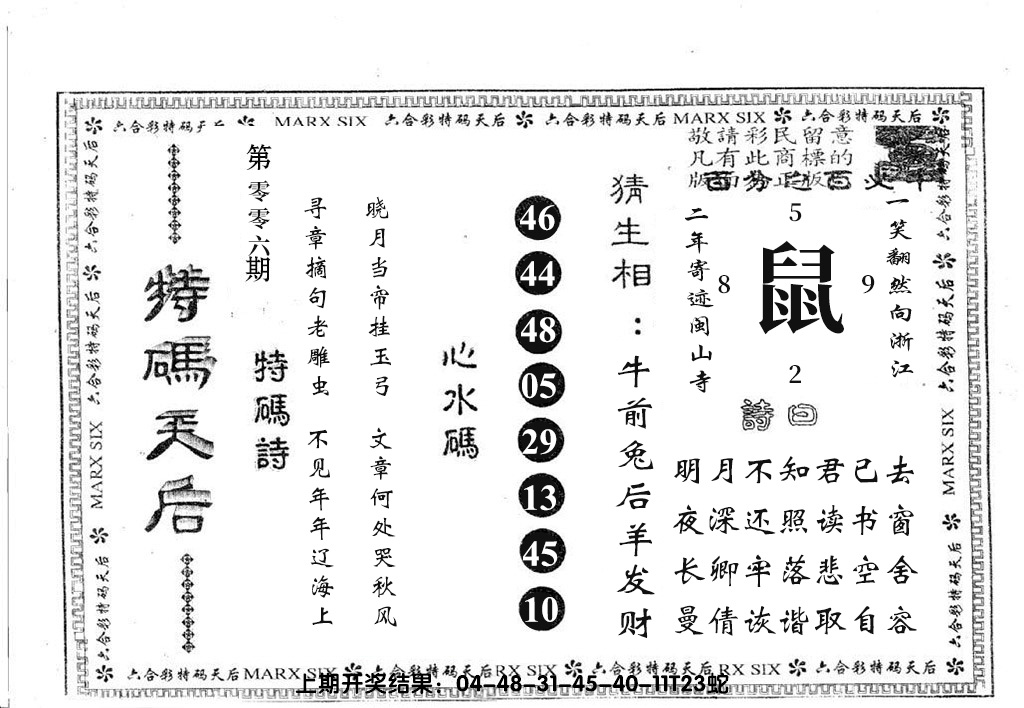 六合彩特码天后 MARX SIX 六合彩特码天后 六合彩特码天后 MARX SIX 六合彩特码天后
敬請彩民留意
凡有此商標的
版面为正版
一笑翻然向浙江
5
8
鼠
9
2
二年寄迹闽山寺
曰
詩
明月不知君已去
夜深还照读书窗
长卿牢落悲空舍
曼倩诙谐取自容
猜生相：牛前兔后羊发财
46
44
48
05
29
13
45
10
心水碼
晓月当帘挂玉弓 文章何处哭秋风
寻章摘句老雕虫 不见年年辽海上
特碼詩
第零零六期
特碼天后
六合彩特码天后 六合彩特码天后 MARX SIX 六合彩特码天后
六合彩特码天后 六合彩特码天后 MARX SIX 六合彩特码天后
六合彩特码天后 MARX SIX 六合彩特码天后 RX SIX 六合彩特码天后 RX SIX 六合彩特码天后
上期开奖结果：04-48-31-45-40-11T23蛇